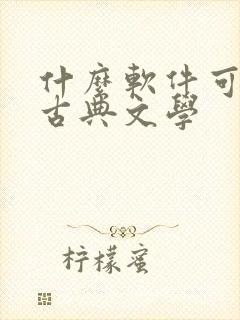 什麼軟件可
古典文學
柠檬蜜